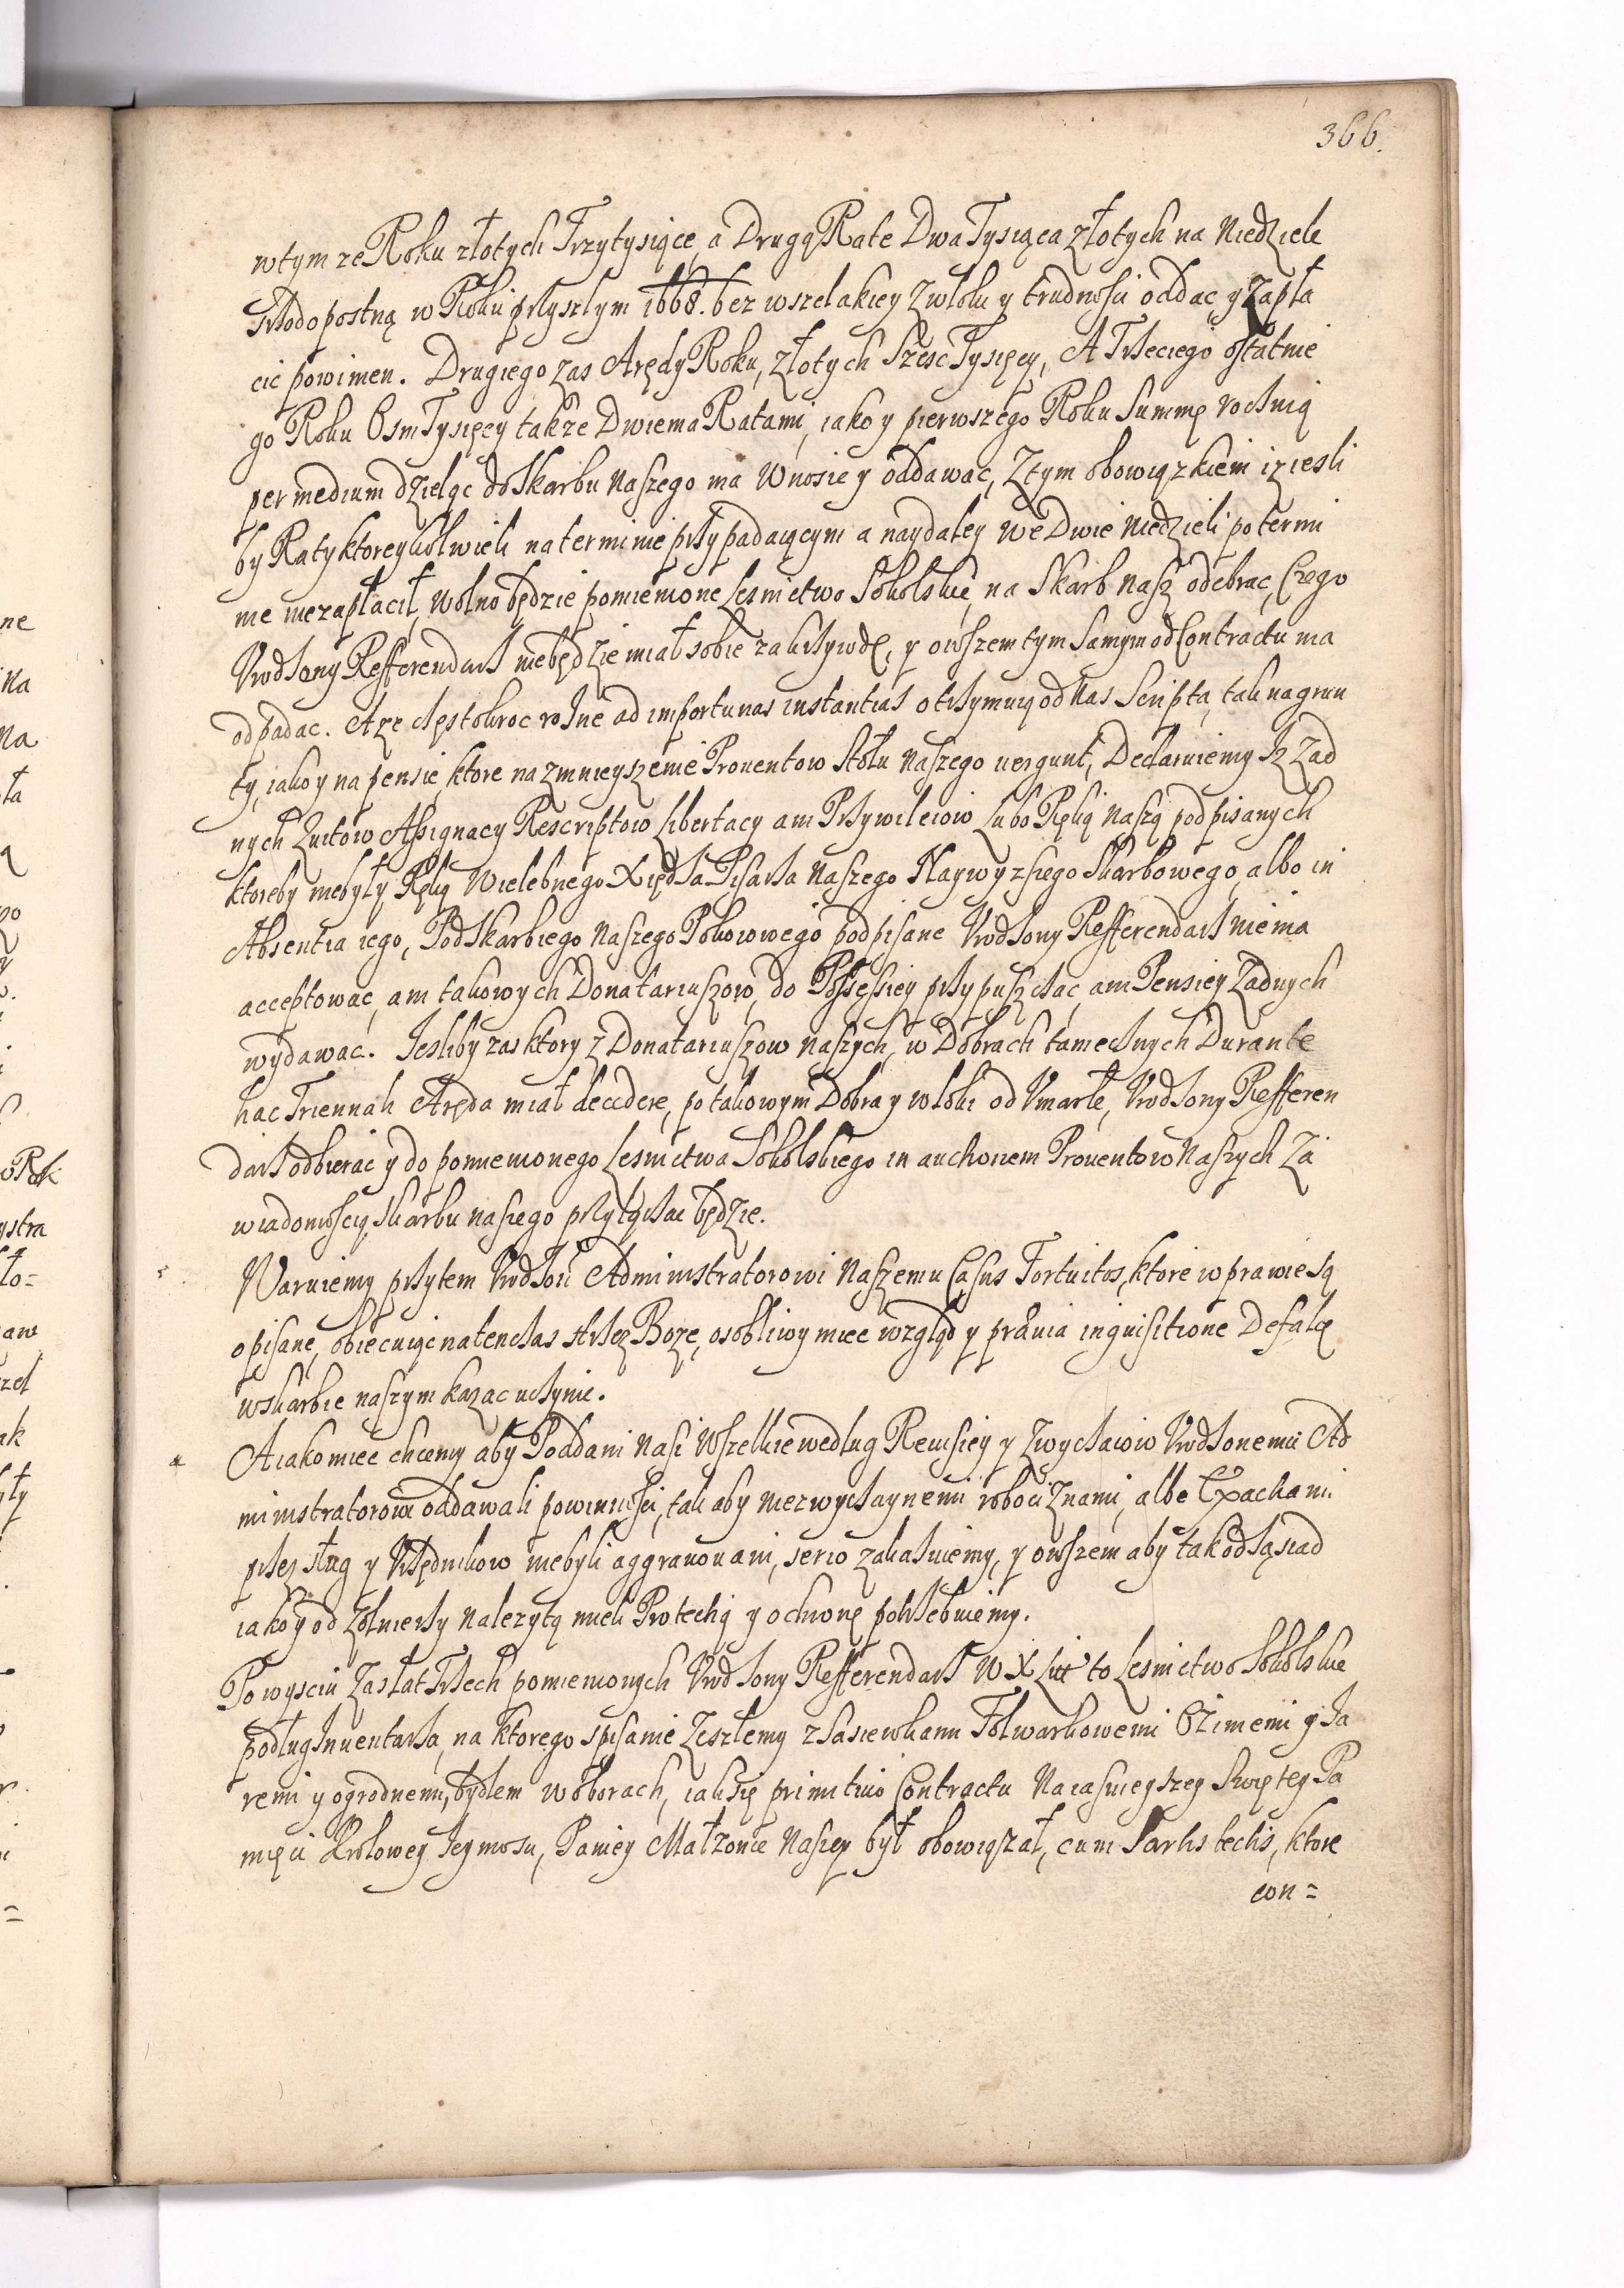 366.
wtym ze Roku złotych Trzytysiące, a Drugą Rate Dwa Tysiąca złotych na Niedziele
Srzodopostną w Roku przyszłym 1668. bez wszelakiey zwłoki y trudnosci oddac y zapła
cic powinien. Drugiego zas Arędy Roku, złotych Szesc Tysięcy, A Trzeciego ostatnie
go Roku Osm Tysięcy także Dwiema Ratami, iako y pierwszego Roku Summę roczną
per medium dzieląc do Skarbu Naszego ma wnosic y oddawac, Ztym obowiązkiem iz iesli
by Raty ktoreykolwiek na terminie przypadaiącym a naydaley we Dwie Niedzieli po termi
nie niezapłacił, wolno będzie pomienione Lesnictwo Sokolskie, na Skarb Nasz odebrac, Czego
Vrodzony Refferendarz niebędzie miał sobie za krzywdę, y owszem tym samym od Contractu ma
odpadac. A ze częstokroc rożne ad importunas instantias otrzymuią od Nas Scripta, tak na grun
ty, iako y na pensie, ktore na zmnieyszenie Prouentow Stołu Naszego uergunt, Declaruiemy Iz zad
nych Kwitow Assignacy Rescriptow Libertacy ani Przywileiow Lubo Ręką Naszą podpisanych
ktoreby niebyły Ręką Wielebnego Xiędza Pisarza Naszego Naywyzszego Skarbowego, albo in
Absentia iego, Podskarbiego Naszego Pokoiowego podpisane Vrodzony Refferendarz niema
acceptowac, ani takowych Donatariuszow, do Possessiey przypuszczac, ani Pensiey Zadnych
wydawac. Iesliby zas ktory z Donatariuszow Naszych, w Dobrach tamecznych Durante
hac Triennali Aręda miał decedere, po takowym Dobra y włoki od Vmarłe, Vrodzony Refferen
darz odbierac y do pomienionego Lesnictwa Sokolskiego in auctionem Prouentow Naszych Za
wiadomoscią Skarbu naszego przyłączac będzie.
Waruiemy przytem Vrodzonu Administratorowi Naszemu Casus Fortuitos, ktore w prawie są
opisane, obiecuiąc natenczas strzez Boze, osobliwy miec wzgląd y prævia inquisitione Defalcę
wskarbie naszym kazac uczynic.
A iako miec chcemy aby Poddani Nasi Wszelkie według Rewisiey y Zwyczaiow Vrodzonemu Ad
ministratorowi oddawali powinnosci, tak aby niezwyczaynemi robociznami, albo Exactiami
przez sług y Vrzędnikow niebyli aggrauouani, serio zakazuiemy, y owszem aby tak od sąsiad
iako y od zołnierzy nalezytą mieli Protectią y ochronę potrzebuiemy.
Po wysciu Zas lat Trzech pomienionych Vrodzony Refferendarz W X Litt to Lesnictwo Sokolskie
podług Inuentarza, na ktorego spisanie Zeszlemy z zasiewkami Folwarkowemi Ozimemi y Ia
remi y ogrodnemi, bydłem w oborach, iak się primitiuo Contractu Naiasnieyszey Swiętey Pa
mięci Krolowey Ieymosci, Paniey Małzonce Naszey był obowiązał, cum Sartis tectis, ktore
con=